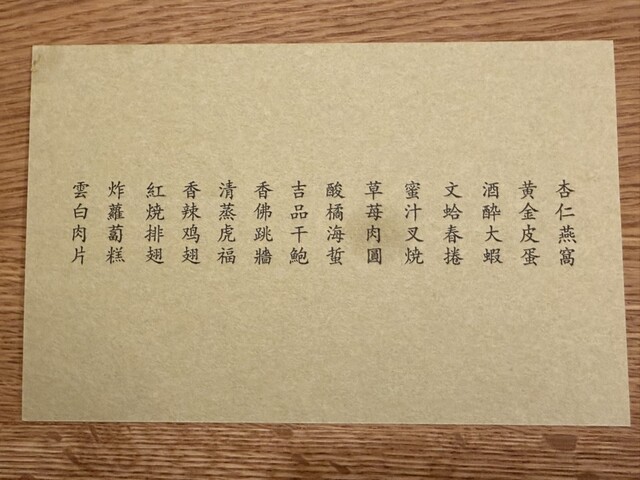 杏仁燕窩
黃金皮蛋
酒醉大蝦
文蛤春捲
蜜汁叉燒
草莓肉圓
酸橘海蜇
吉品干鮑
香佛跳牆
清蒸虎福
香辣鸡翅
紅燒排翅
炸蘿蔔糕
雲白肉片